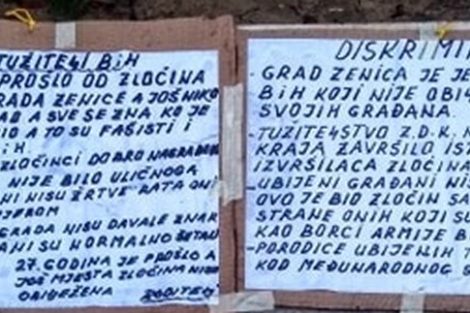 TUŽITE4I BiH
PROŠLO OD ZLOČINA
RADA ZENICE A JOŠ NIKO
AD A SVE SE ZNA KO JE
IO A TO SU FAŠISTI I
i H.
ZLOČINCI DOBRO NAGRAĐEN
NIJE BILO ULIČNOGA
NI NISU ŽRTVE RATA ONI
JEROM
GRADA NISU DAVALE ZNAK
ANI SU NORMALNO ŠETAL
27. GODINA JE PROŠLO A
JOŠ MJESTA ZLOČINA NISU
OBILJEŽENA
DISKRIMI
- GRAD ZENICA JE JE
BiH KOJI NIJE OBI
SVOJIH GRAĐANA.
- TUŽITE4STVO Z.D.K.
KRAJA ZAVRŠILO IST
IZVRŠILACA ZLOČINA
- UBIJENI GRAĐANI NI
OVO JE BIO ZLOČIN SA
STRANE ONIH KOJI SU
KAO BORCI ARMIJE B
- PORODICE UBIJENIH T
KOD MEĐUNARODNOG